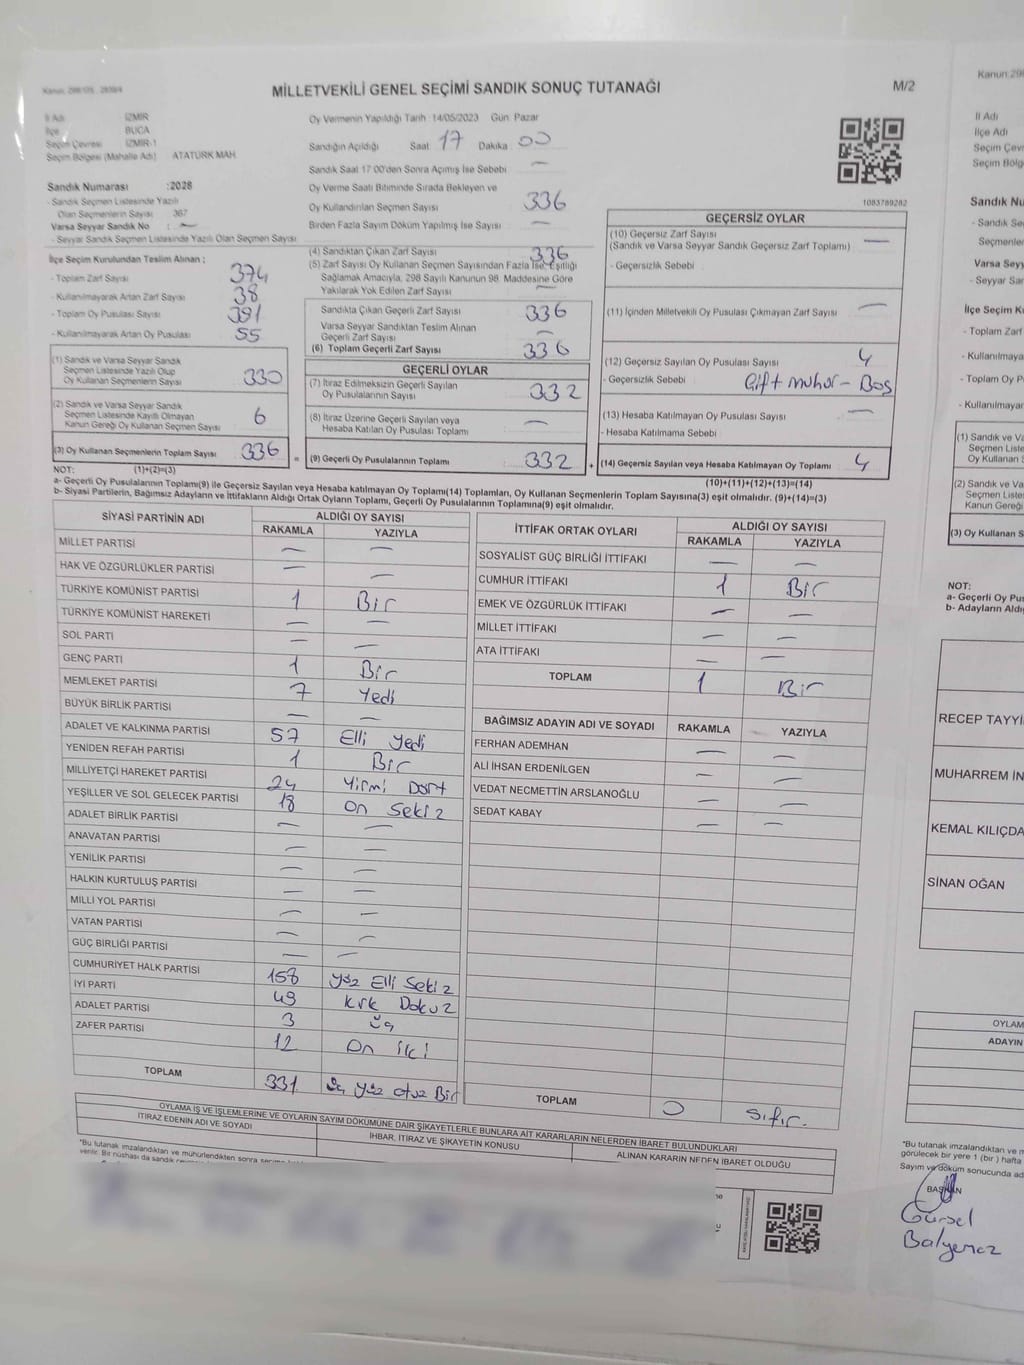 Kanun: 298/105 , 2839/4
MİLLETVEKİLİ GENEL SEÇİMİ SANDIK SONUÇ TUTANAĞI
M/2
İl Adı İZMİR
İlçe BUCA
Seçim Çevresi İZMİR-1
Seçim Bölgesi (Mahalle Adı) ATATÜRK MAH.
Oy Vermenin Yapıldığı Tarih :14/05/2023 Gün: Pazar
Sandığın Açıldığı Saat 17 Dakika 00
Sandık Saat 17:00'den Sonra Açılmış İse Sebebi —
Oy Verme Saati Bitiminde Sırada Bekleyen ve
Oy Kullandırılan Seçmen Sayısı 336
Birden Fazla Sayım Döküm Yapılmış İse Sayısı —
Sandık Numarası :2028
- Sandık Seçmen Listesinde Yazılı
Olan Seçmenlerin Sayısı 367
Varsa Seyyar Sandık No : —
- Seyyar Sandık Seçmen Listesinde Yazılı Olan Seçmen Sayısı
1083789282
İlçe Seçim Kurulundan Teslim Alınan ;
- Toplam Zarf Sayısı 374
- Kullanılmayarak Artan Zarf Sayısı 38
- Toplam Oy Pusulası Sayısı 391
- Kullanılmayarak Artan Oy Pusulası 55
(1) Sandık ve Varsa Seyyar Sandık
Seçmen Listesinde Yazılı Olup
Oy Kullanan Seçmenlerin Sayısı 330
(2) Sandık ve Varsa Seyyar Sandık
Seçmen Listesinde Kayıtlı Olmayan
Kanun Gereği Oy Kullanan Seçmen Sayısı 6
(3) Oy Kullanan Seçmenlerin Toplam Sayısı 336
NOT: (1)+(2)=(3)
(4) Sandıktan Çıkan Zarf Sayısı 336
(5) Zarf Sayısı Oy Kullanan Seçmen Sayısından Fazla İse, Eşitliği
Sağlamak Amacıyla, 298 Sayılı Kanunun 98. Maddesine Göre
Yakılarak Yok Edilen Zarf Sayısı —
Sandıkta Çıkan Geçerli Zarf Sayısı 336
Varsa Seyyar Sandıktan Teslim Alınan
Geçerli Zarf Sayısı —
(6) Toplam Geçerli Zarf Sayısı 336
GEÇERLİ OYLAR
(7) İtiraz Edilmeksizin Geçerli Sayılan
Oy Pusulalarının Sayısı 332
(8) İtiraz Üzerine Geçerli Sayılan veya
Hesaba Katılan Oy Pusulası Toplamı —
= (9) Geçerli Oy Pusulalarının Toplamı 332 +
GEÇERSİZ OYLAR
(10) Geçersiz Zarf Sayısı
(Sandık ve Varsa Seyyar Sandık Geçersiz Zarf Toplamı) —
- Geçersizlik Sebebi
(11) İçinden Milletvekili Oy Pusulası Çıkmayan Zarf Sayısı —
(12) Geçersiz Sayılan Oy Pusulası Sayısı 4
- Geçersizlik Sebebi Çift muhur - Boş
(13) Hesaba Katılmayan Oy Pusulası Sayısı —
- Hesaba Katılmama Sebebi
(14) Geçersiz Sayılan veya Hesaba Katılmayan Oy Toplamı 4
(10)+(11)+(12)+(13)=(14)
a- Geçerli Oy Pusulalarının Toplamı(9) ile Geçersiz Sayılan veya Hesaba katılmayan Oy Toplamı(14) Toplamları, Oy Kullanan Seçmenlerin Toplam Sayısına(3) eşit olmalıdır. (9)+(14)=(3)
b- Siyasi Partilerin, Bağımsız Adayların ve İttifakların Aldığı Ortak Oyların Toplamı, Geçerli Oy Pusulalarının Toplamına(9) eşit olmalıdır.
SİYASİ PARTİNİN ADI ALDIĞI OY SAYISI
RAKAMLA YAZIYLA
MİLLET PARTİSİ — —
HAK VE ÖZGÜRLÜKLER PARTİSİ — —
TÜRKİYE KOMÜNİST PARTİSİ 1 Bir
TÜRKİYE KOMÜNİST HAREKETİ — —
SOL PARTİ — —
GENÇ PARTİ 1 Bir
MEMLEKET PARTİSİ 7 Yedi
BÜYÜK BİRLİK PARTİSİ — —
ADALET VE KALKINMA PARTİSİ 57 Elli Yedi
YENİDEN REFAH PARTİSİ 1 Bir
MİLLİYETÇİ HAREKET PARTİSİ 24 Yirmi Dört
YEŞİLLER VE SOL GELECEK PARTİSİ 18 On Sekiz
ADALET BİRLİK PARTİSİ — —
ANAVATAN PARTİSİ — —
YENİLİK PARTİSİ — —
HALKIN KURTULUŞ PARTİSİ — —
MİLLİ YOL PARTİSİ — —
VATAN PARTİSİ — —
GÜÇ BİRLİĞİ PARTİSİ — —
CUMHURİYET HALK PARTİSİ 158 Yüz Elli Sekiz
İYİ PARTİ 49 Kırk Dokuz
ADALET PARTİSİ 3 Üç
ZAFER PARTİSİ 12 On iki
TOPLAM 331 Üç Yüz otuz Bir
İTTİFAK ORTAK OYLARI ALDIĞI OY SAYISI
RAKAMLA YAZIYLA
SOSYALİST GÜÇ BİRLİĞİ İTTİFAKI — —
CUMHUR İTTİFAKI 1 Bir
EMEK VE ÖZGÜRLÜK İTTİFAKI — —
MİLLET İTTİFAKI — —
ATA İTTİFAKI — —
TOPLAM 1 Bir
BAĞIMSIZ ADAYIN ADI VE SOYADI RAKAMLA YAZIYLA
FERHAN ADEMHAN — —
ALİ İHSAN ERDENİLGEN — —
VEDAT NECMETTİN ARSLANOĞLU — —
SEDAT KABAY — —
TOPLAM 0 Sıfır.
OYLAMA İŞ VE İŞLEMLERİNE VE OYLARIN SAYIM DÖKÜMÜNE DAİR ŞİKAYETLERLE BUNLARA AİT KARARLARIN NELERDEN İBARET BULUNDUKLARI
İTİRAZ EDENİN ADI VE SOYADI İHBAR, İTİRAZ VE ŞİKAYETİN KONUSU ALINAN KARARIN NEDEN İBARET OLDUĞU
"Bu tutanak imzalandıktan ve mühürlendikten sonra
verilir. Bir nüshası da sandık
Kanun:298
İl Adı
İlçe Adı
Seçim Çevre
Seçim Bölg
Sandık Nu
- Sandık Se
Seçmenler
Varsa Seyy
- Seyyar San
İlçe Seçim K
- Toplam Zarf
- Kullanılmaya
- Toplam Oy P
- Kullanılmaya
(1) Sandık ve Va
Seçmen Liste
Oy Kullanan S
(2) Sandık ve Va
Seçmen Listes
Kanun Gereği
(3) Oy Kullanan S
NOT:
a- Geçerli Oy Pus
b- Adayların Aldı
RECEP TAYYİ
MUHARREM İN
KEMAL KILIÇDA
SİNAN OĞAN
OYLAM
ADAYIN
"Bu tutanak imzalandıktan ve m
görülecek bir yere 1 (bir ) hafta
Sayım ve döküm sonucunda ad
BAŞKAN
Gürsel
Balyemez